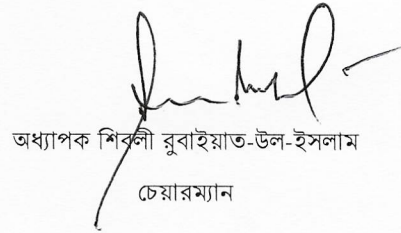 অধ্যাপক শিবলী রুবাইয়াত-উল-ইসলাম
চেয়ারম্যান